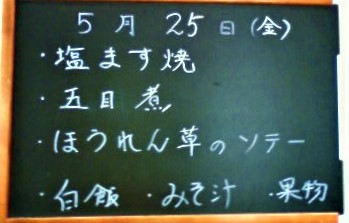 5月25日(金)
・塩ます焼
・五目煮
・ほうれん草のソテー
・白飯 ・みそ汁 ・果物